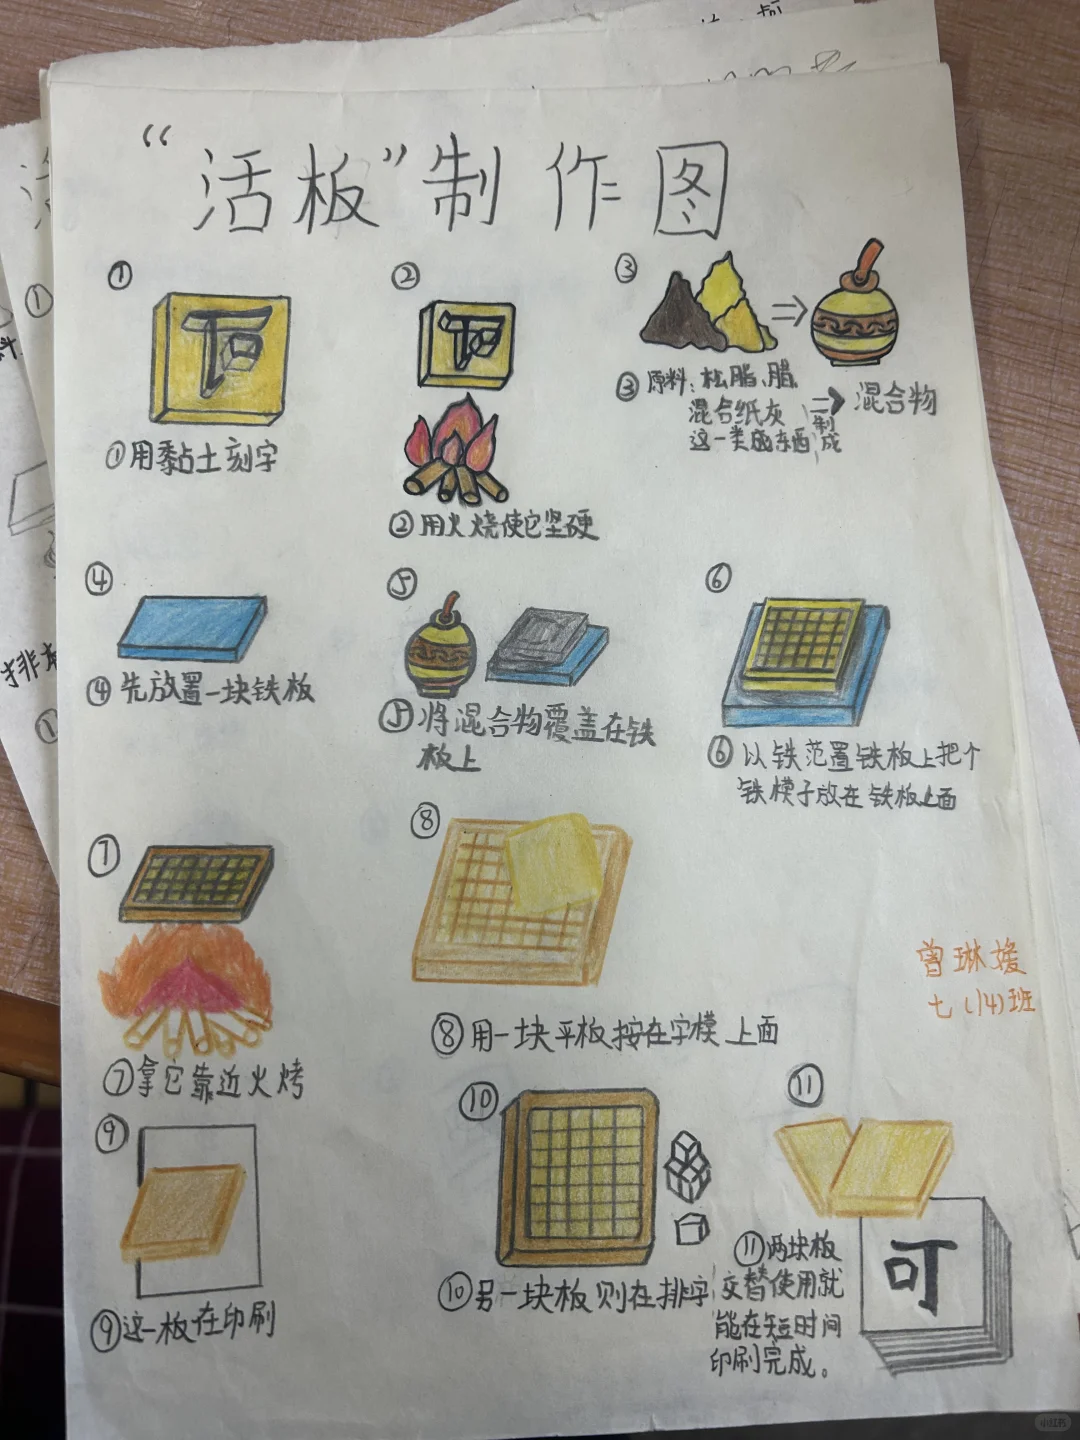 “活板”制作图
①
①用黏土刻字
②
②用火烧使它坚硬
③
③原料:松脂、腊
混合纸灰
这一类的东西
制成
混合物
④
④先放置一块铁板
⑤
⑤将混合物覆盖在铁
板上
⑥
⑥以铁范置铁板上把个
铁模子放在铁板上面
⑦
⑦拿它靠近火烤
⑧
⑧用一块平板按在字模上面
曾琳媛
七(14)班
⑨
⑨这一板在印刷
⑩
⑩另一块板则在排字
⑪
⑪两块板
交替使用就
能在短时间
印刷完成。
可
小红书